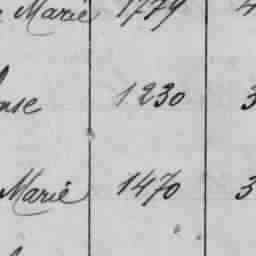 Marie 1779 4
nse 1230 3
Marie 1470 3